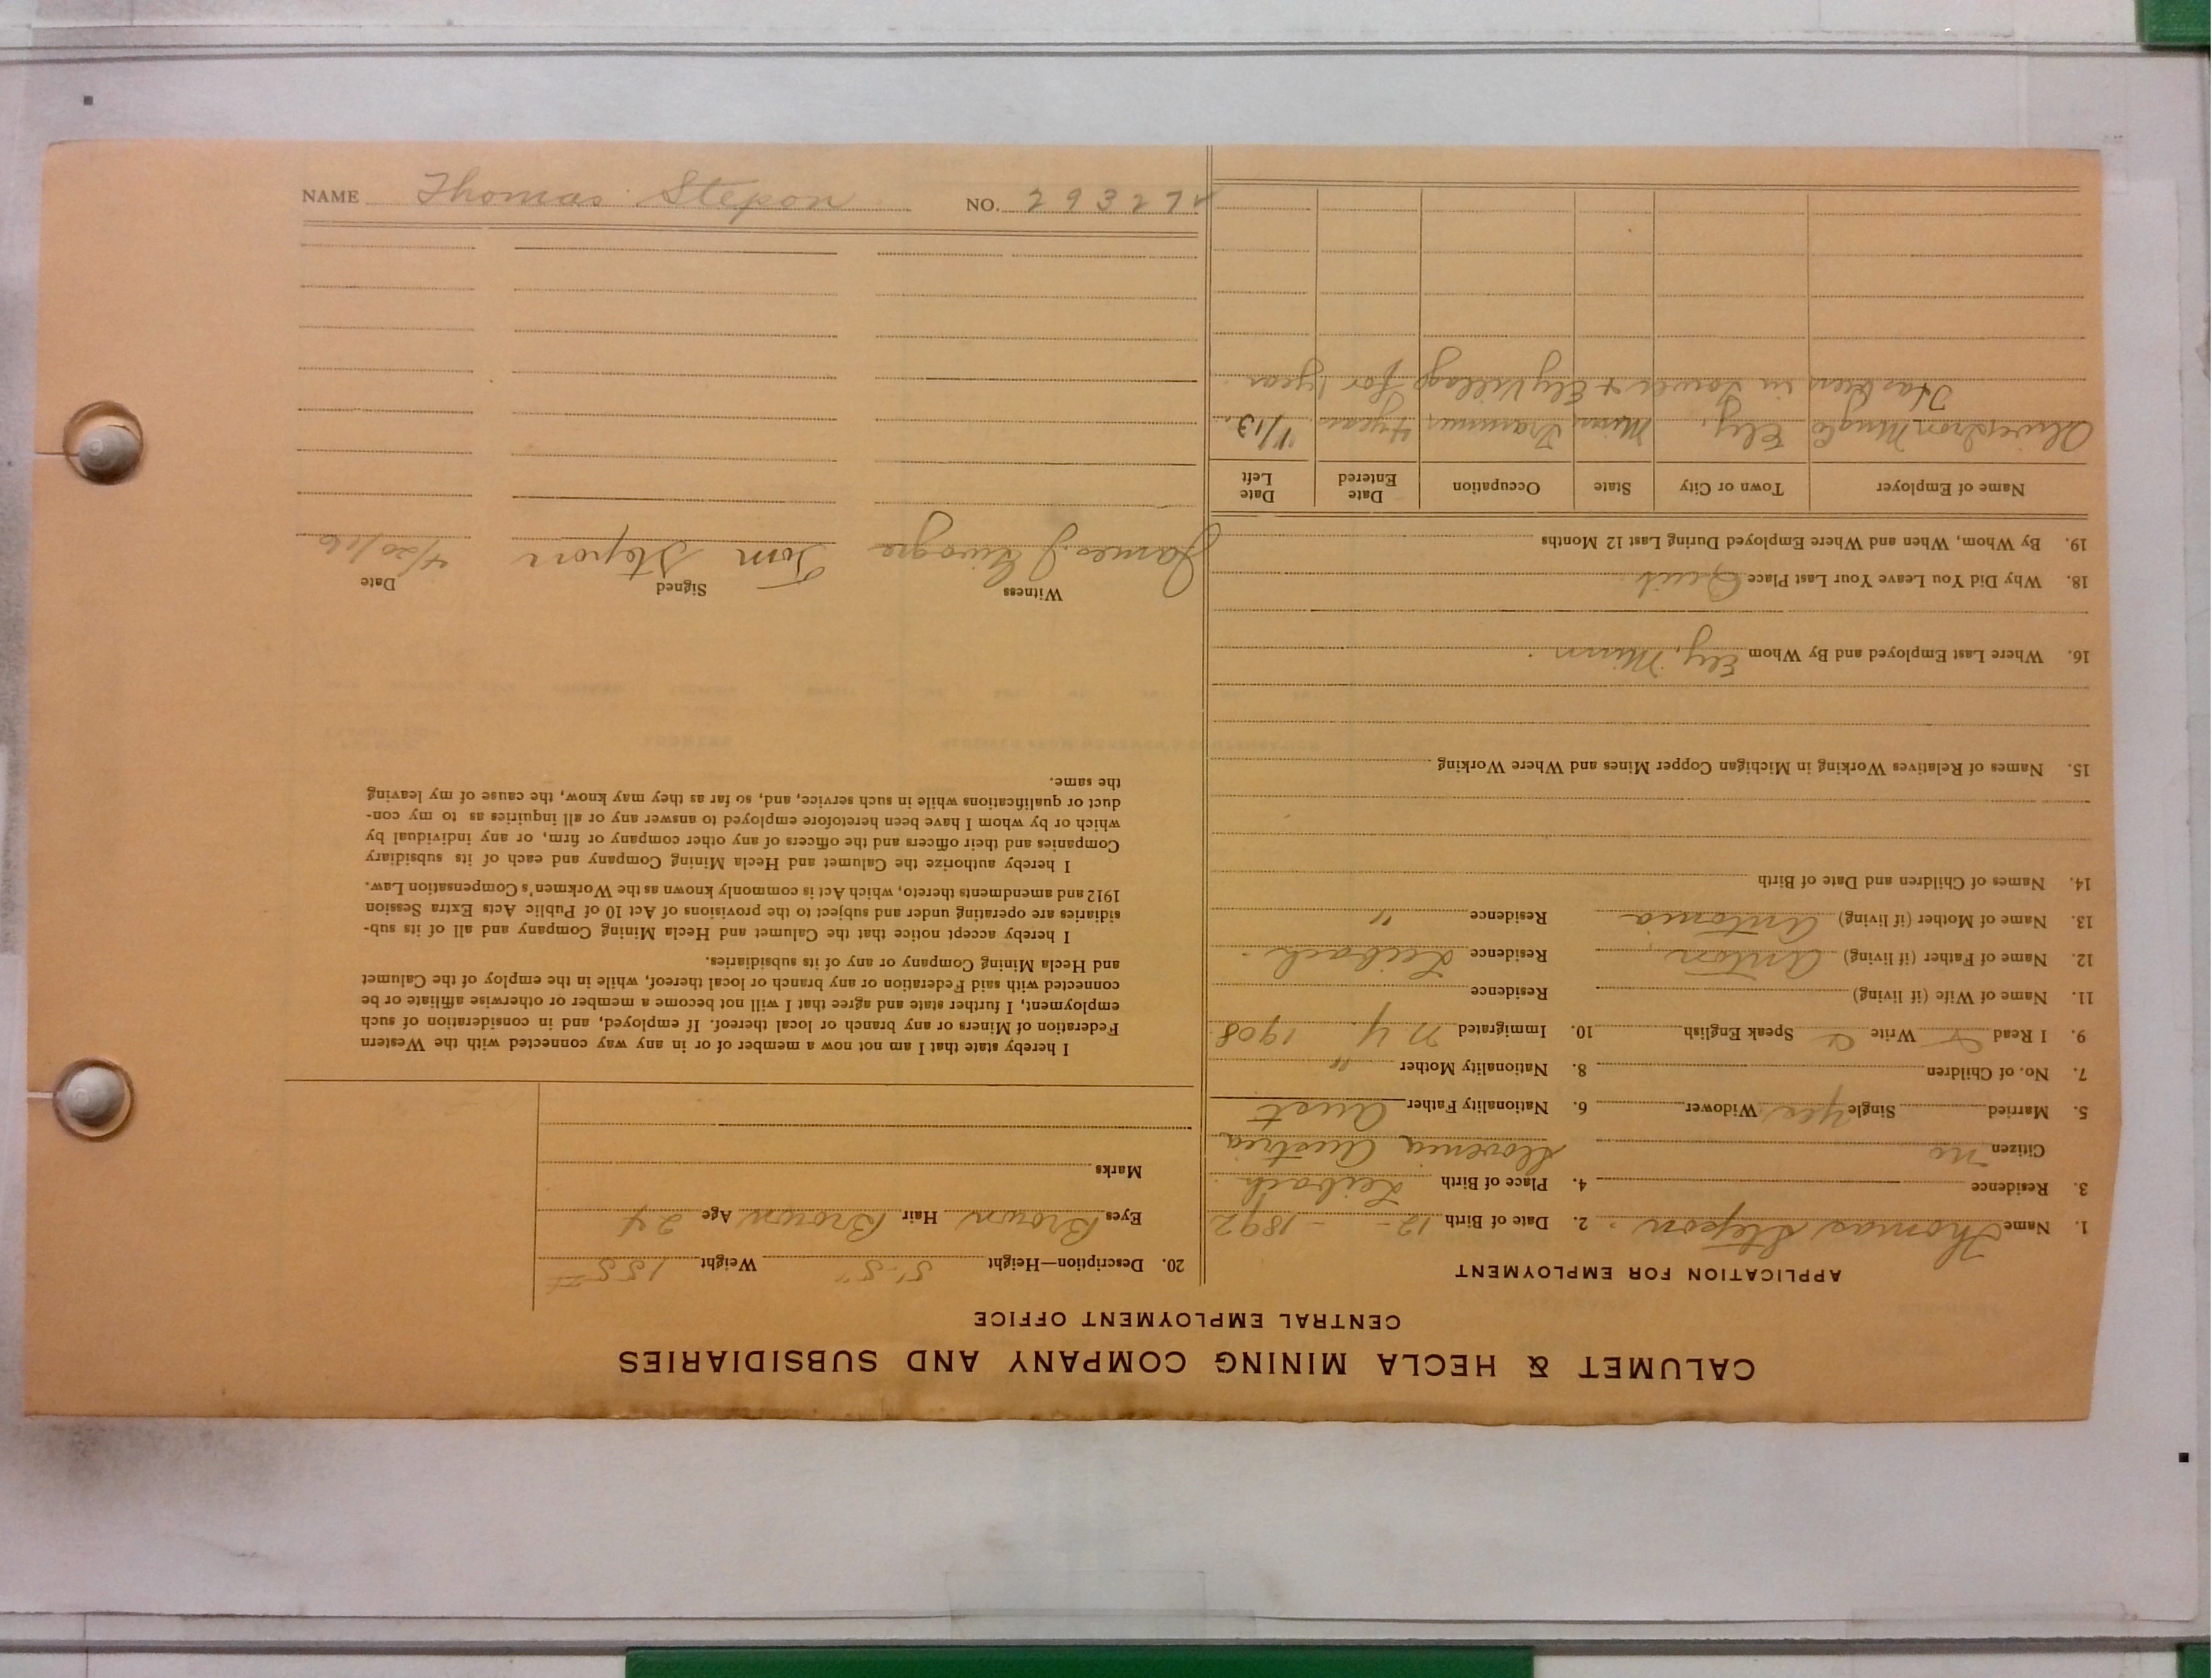 CALUMET & HECLA MINING COMPANY AND SUBSIDIARIES
CENTRAL EMPLOYMENT OFFICE
APPLICATION FOR EMPLOYMENT
1. Name Thomas Stepon 2. Date of Birth 12 - - 1892
3. Residence 4. Place of Birth Leibach
Citizen no Slovenia Austria
5. Married Single Yes Widower 6. Nationality Father Aust
7. No. of Children 8. Nationality Mother "
9. I Read Write Speak English 10. Immigrated N Y. 1908
11. Name of Wife (if living) Residence
12. Name of Father (if living) Anton Residence Leibach
13. Name of Mother (if living) Antonia Residence "
14. Names of Children and Date of Birth
15. Names of Relatives Working in Michigan Copper Mines and Where Working
16. Where Last Employed and By Whom Ely, Minn
18. Why Did You Leave Your Last Place Quit
19. By Whom, When and Where Employed During Last 12 Months
Name of Employer Town or City State Occupation Date Entered Date Left
Oliver Iron Mng Co Ely, Minn Trammer 4 years 1/13.
Has been in Tower & Ely Village for 1 year
20. Description—Height 5'-5" Weight 155#
Eyes Brown Hair Brown Age 24
Marks
I hereby state that I am not now a member of or in any way connected with the Western
Federation of Miners or any branch or local thereof. If employed, and in consideration of such
employment, I further state and agree that I will not become a member or otherwise affiliate or be
connected with said Federation or any branch or local thereof, while in the employ of the Calumet
and Hecla Mining Company or any of its subsidiaries.
I hereby accept notice that the Calumet and Hecla Mining Company and all of its sub-
sidiaries are operating under and subject to the provisions of Act 10 of Public Acts Extra Session
1912 and amendments thereto, which Act is commonly known as the Workmen's Compensation Law.
I hereby authorize the Calumet and Hecla Mining Company and each of its subsidiary
Companies and their officers and the officers of any other company or firm, or any individual by
which or by whom I have been heretofore employed to answer any or all inquiries as to my con-
duct or qualifications while in such service, and, so far as they may know, the cause of my leaving
the same.
Witness Signed Date
James J Tom Stepon 4/20/16
NAME Thomas Stepon NO. 29327